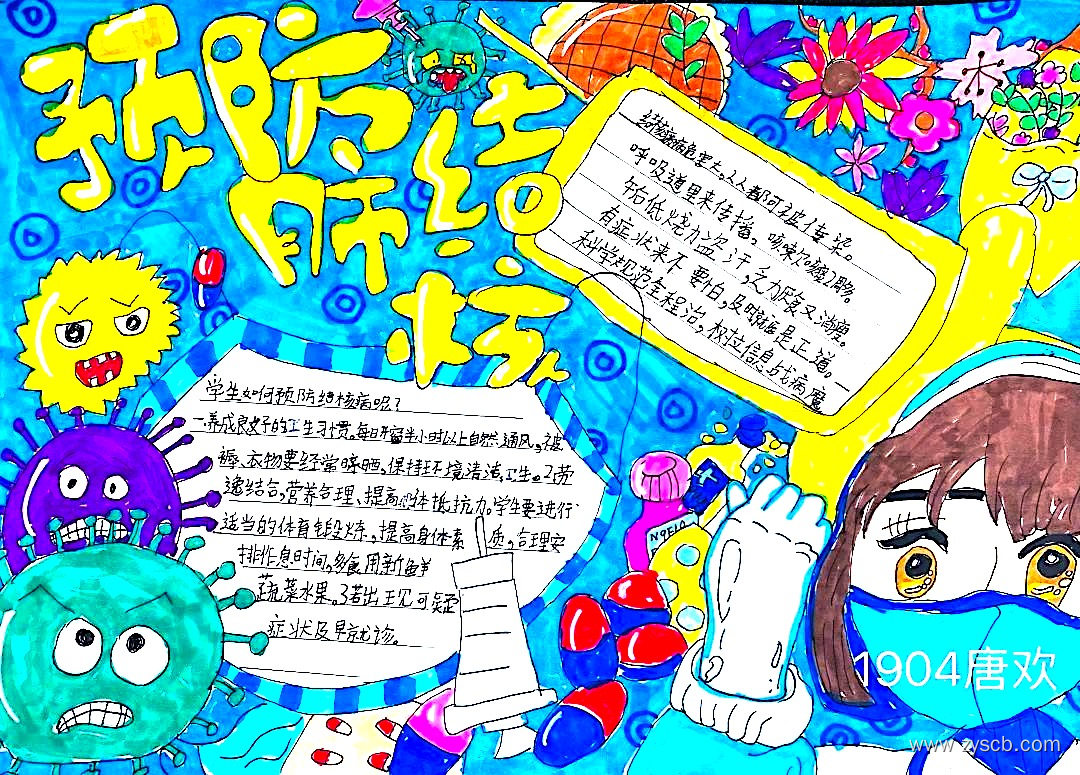 预防
肺结
核
结核病危害大,人人都可被传染。
呼吸道里来传播,咳嗽加
午后低烧力盗汗,乏力厌食又消瘦。
有症状来不要怕,及时就医是正道。
科学规范全程治,权威信息战病魔
学生如何预防结核病呢?
一养成良好的卫生习惯。每日开窗半小时以上自然通风,被
褥、衣物要经常晾晒。保持环境清洁卫生。2劳
逸结合,营养合理、提高身体抵抗力。学生要进行
适当的体育锻炼,提高身体素质,合理安
排作息时间,多食用新鲜
蔬菜水果。3若出现可疑
症状及早就诊。
1904唐欢
www.zyscb.com